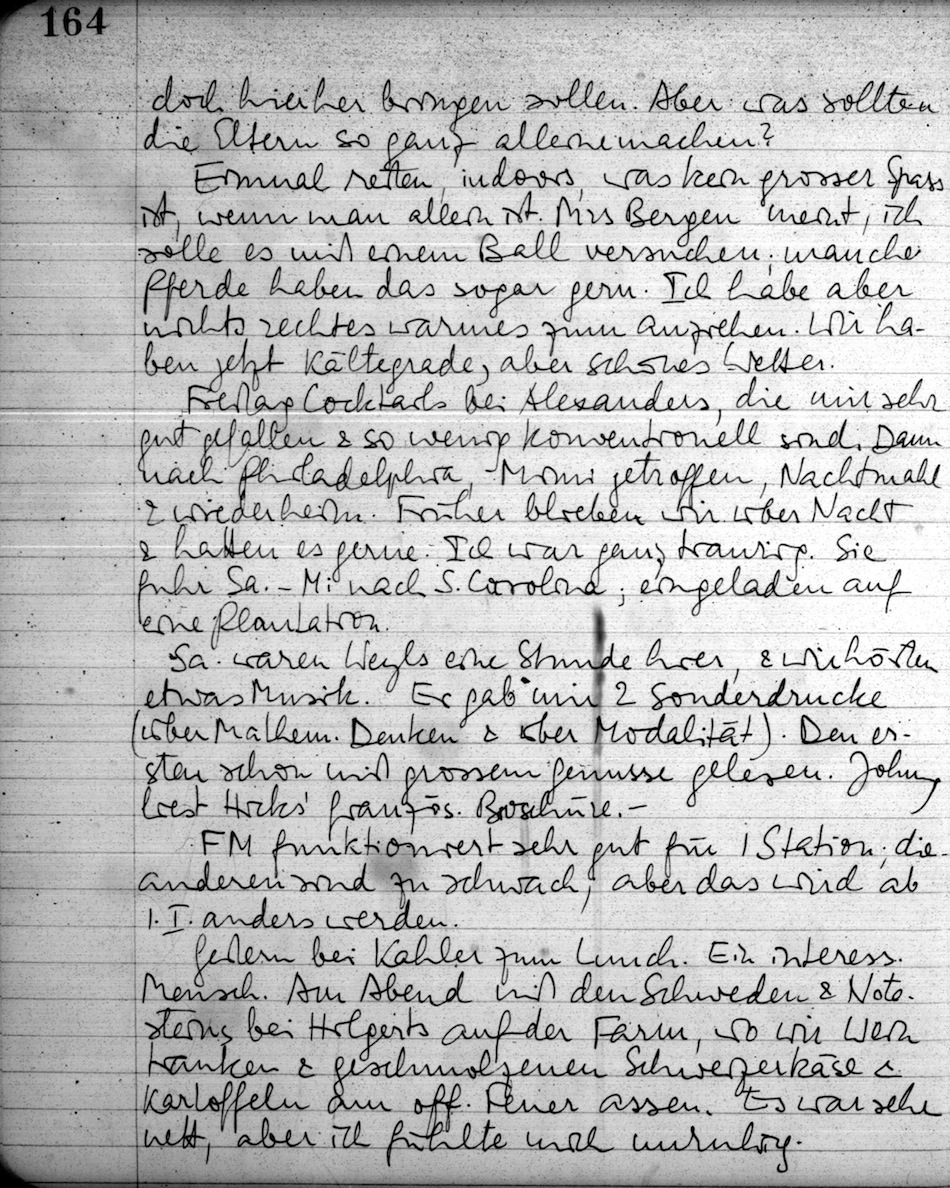 164
doch hierher bringen sollen. Aber was sollten
die Eltern so ganz alleine machen?
Einmal reiten, indoors, was kein grosser Spass
ist, wenn man allein ist. Miss Bergen meint, ich
solle es mit einem Ball versuchen; manche
Pferde haben das sogar gern. Ich habe aber
nichts rechtes warmes zum anziehen. Wir ha-
ben jetzt Kältegrade, aber schönes Wetter.
Freitag Cocktails bei Alexanders, die mir sehr
gut gefallen & so wenig konventionell sind. Dann
nach Philadelphia, Mimi getroffen, Nachtmahl
& wieder heim. Früher blieben wir über Nacht
& hatten es gerne. Ich war ganz traurig. Sie
fuhr Sa. - Mi nach S. Carolina, eingeladen auf
eine Plantation.
Sa. waren Weyls eine Stunde hier, & wir hörten
etwas Musik. Er gab mir 2 Sonderdrucke
(über Mathem. Denken & über Modalität). Den er-
sten schon mit grossem Genusse gelesen. Johnny
liest Hicks' französ. Broschüre. -
FM funktioniert sehr gut für 1 Station; die
anderen sind zu schwach, aber das wird ab
1. I. anders werden.
Gestern bei Kahler zum Lunch. Ein interess.
Mensch. Am Abend mit den Schweden & Note-
steins bei Holgerts auf der Farm, wo wir Wein
tranken & geschmolzenen Schweizerkäse &
Kartoffeln am off. Feuer assen. Es war sehr
nett, aber ich fühlte mich unruhig.